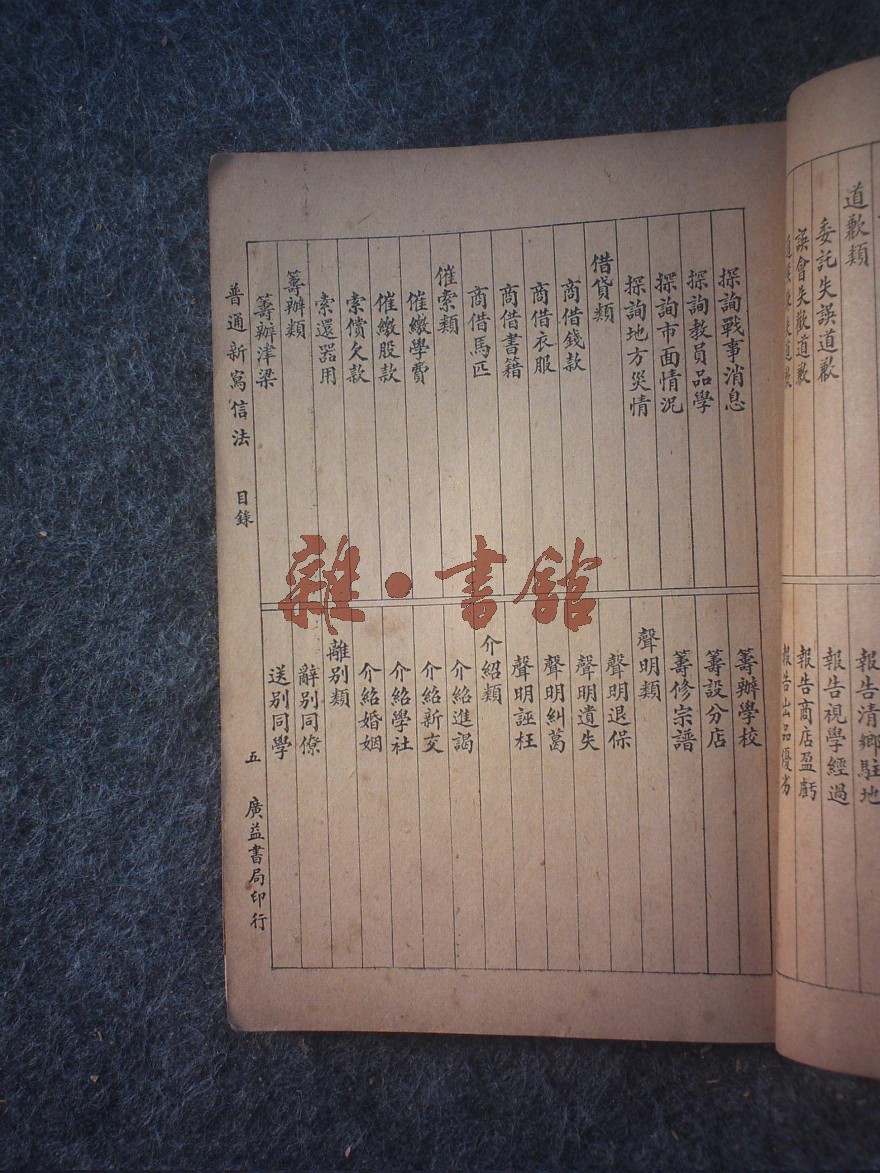 道歉類
委託失誤道歉
誤會失歡道歉
報告清鄉駐地
報告視學經過
報告商店盈虧
報告出品優劣
探詢戰事消息
探詢教員品學
探詢市面情況
探詢地方災情
借貸類
商借錢款
商借衣服
商借書籍
商借馬匹
催索類
催繳學費
催繳股款
索償欠款
索還器用
籌辦類
籌辦津梁
籌辦學校
籌設分店
籌修宗譜
聲明類
聲明退保
聲明遺失
聲明糾葛
聲明誣枉
介紹類
介紹進謁
介紹新交
介紹學社
介紹婚姻
離別類
辭別同僚
送別同學
普通新寫信法 目錄 五 廣益書局印行
雜·書館